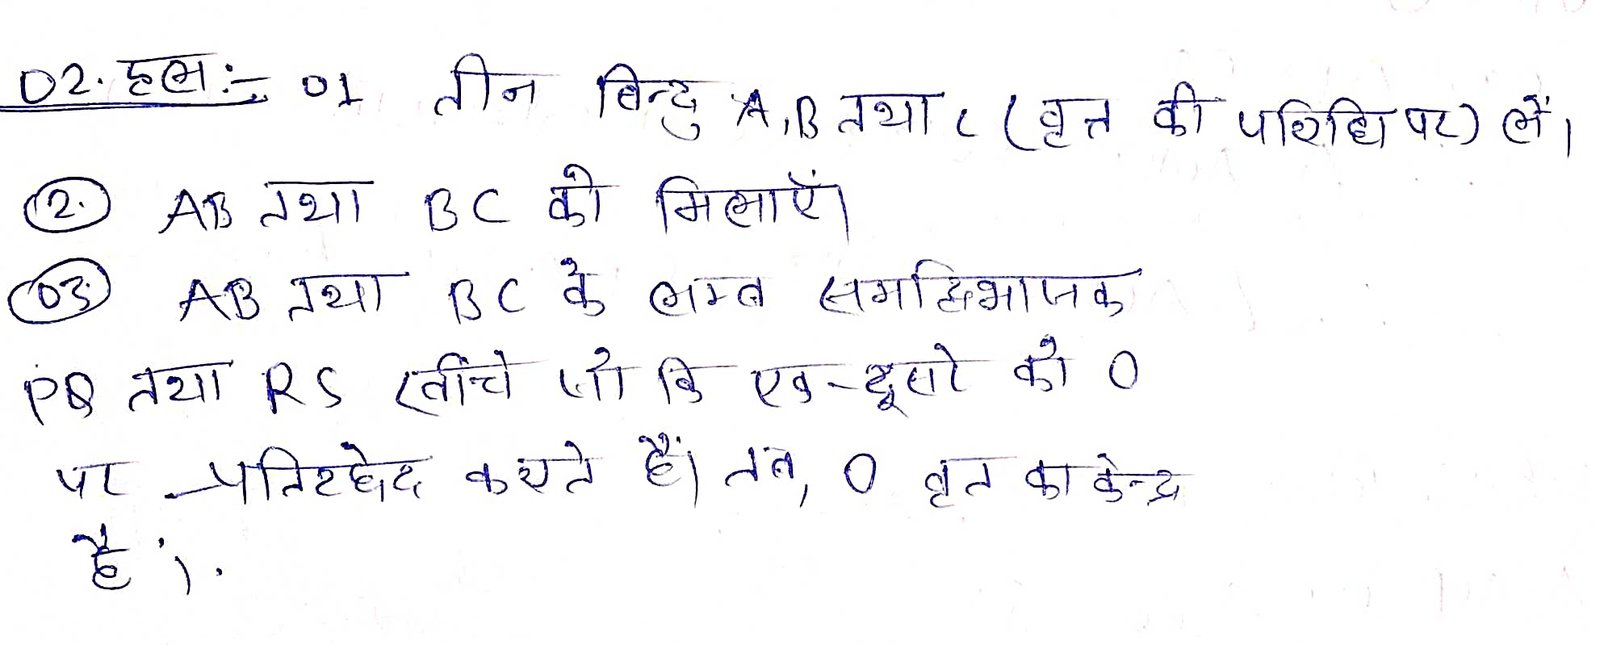 02. हल :- 01 तीन बिन्दु A,B तथा C (वृत्त की परिधि पर) लें।
2. AB तथा BC को मिलाएँ।
03. AB तथा BC के लम्ब समद्विभाजक
PQ तथा RS खींचे जो कि एक-दूसरे को O
पर प्रतिच्छेद करते हैं। तब, O वृत का केन्द्र
है ।.